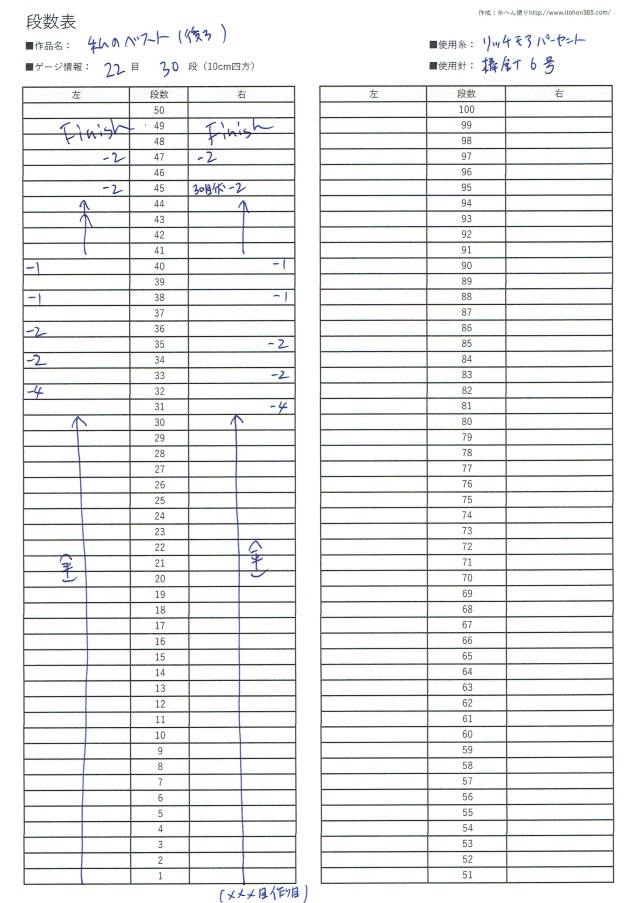 作成：糸へん便りhttp://www.itohen365.com/
段数表
■作品名： 私のベスト（後ろ） ■使用糸： リッチモア パーセント
■ゲージ情報： 22 目 30 段（10cm四方） ■使用針： 棒針 6号
左 段数 右 左 段数 右
50 100
Finish 49 Finish 99
48 98
-2 47 -2 97
46 96
-2 45 30目伏 -2 95
44 94
43 93
42 92
41 91
-1 40 -1 90
39 89
-1 38 -1 88
37 87
-2 36 86
35 -2 85
-2 34 84
33 -2 83
-4 32 82
31 -4 81
30 80
29 79
28 78
27 77
26 76
25 75
24 74
23 73
22 72
（平） 21 （平） 71
20 70
19 69
18 68
17 67
16 66
15 65
14 64
13 63
12 62
11 61
10 60
9 59
8 58
7 57
6 56
5 55
4 54
3 53
2 52
1 51
（×××目作り目）